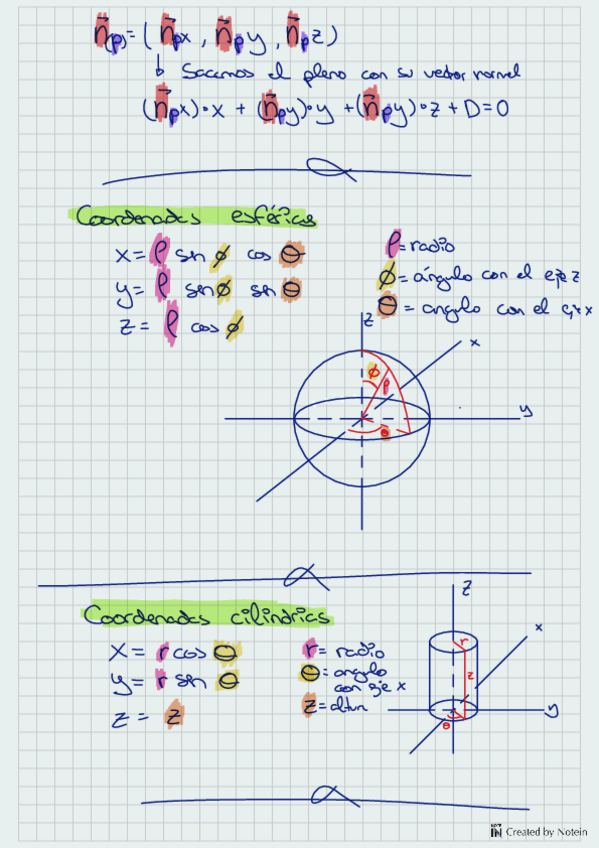 n⃗(p) = ( n⃗px , n⃗py , n⃗pz )
↓ Sacamos el plano con su vector normal
(n⃗px)·x + (n⃗py)·y + (n⃗py)·z + D = 0
Coordenadas esféricas
x = ρ sn ϕ cos θ
y = ρ sn ϕ sn θ
z = ρ cos ϕ
ρ = radio
ϕ = ángulo con el eje z
θ = angulo con el eje x
z
x
ϕ
ρ
y
θ
Coordenadas cilindricas
x = r cos θ
y = r sn θ
z = z
r = radio
θ: angulo
con eje x
z = altura
z
x
r
z
y
θ
NOTE IN Created by Notein